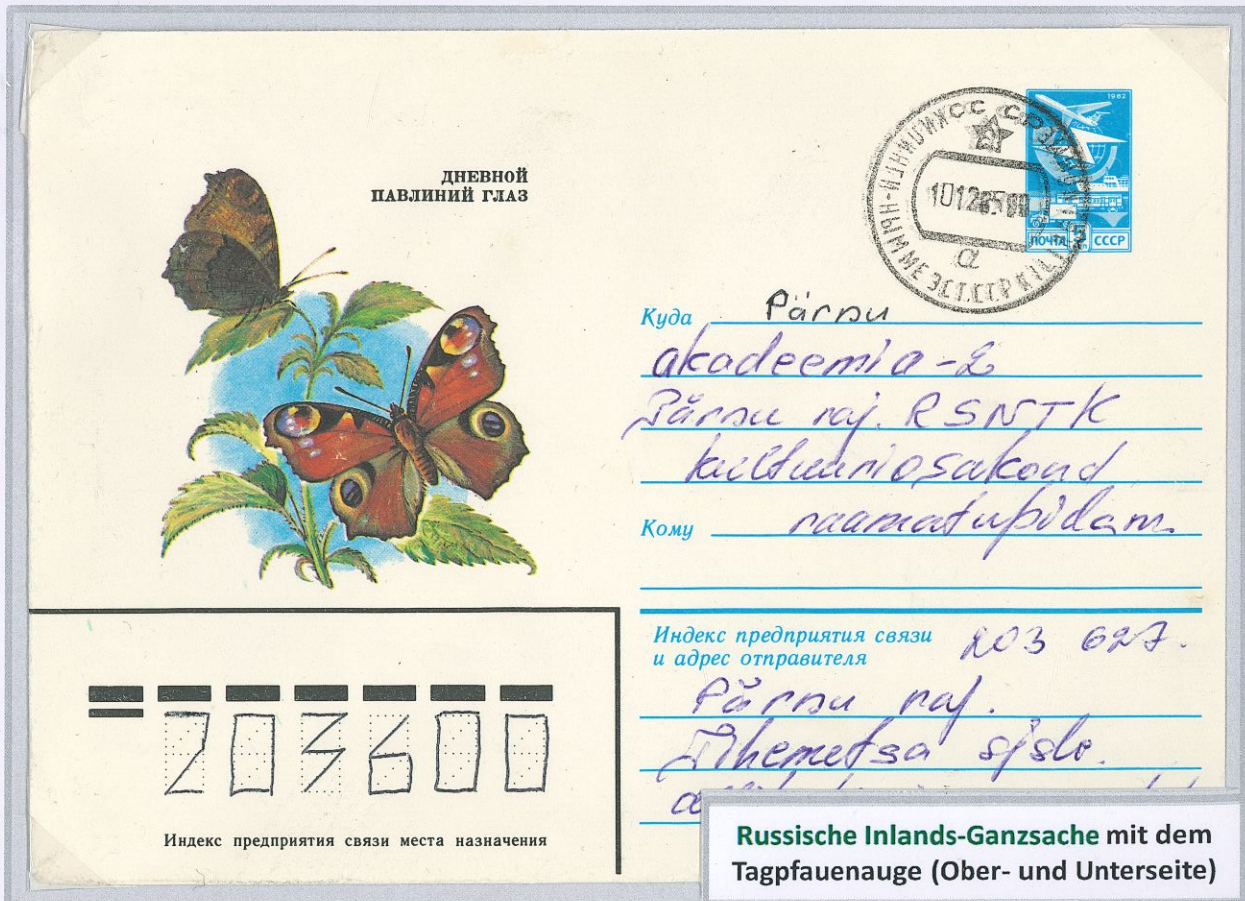 ДНЕВНОЙ
ПАВЛИНИЙ ГЛАЗ
1982
ПОЧТА 5 СССР
СССР
КИЛИНГИ-НЫММЕ ЭСТ.ССР
101285
а
Куда Pärnu
akadeemia-2
Pärnu raj. RSNTK
kultuuriosakond
Кому raamatupidam.
Индекс предприятия связи
и адрес отправителя 203 627.
Pärnu raj.
Tihemetsa sjsk.
203600
Индекс предприятия связи места назначения
Russische Inlands-Ganzsache mit dem
Tagpfauenauge (Ober- und Unterseite)